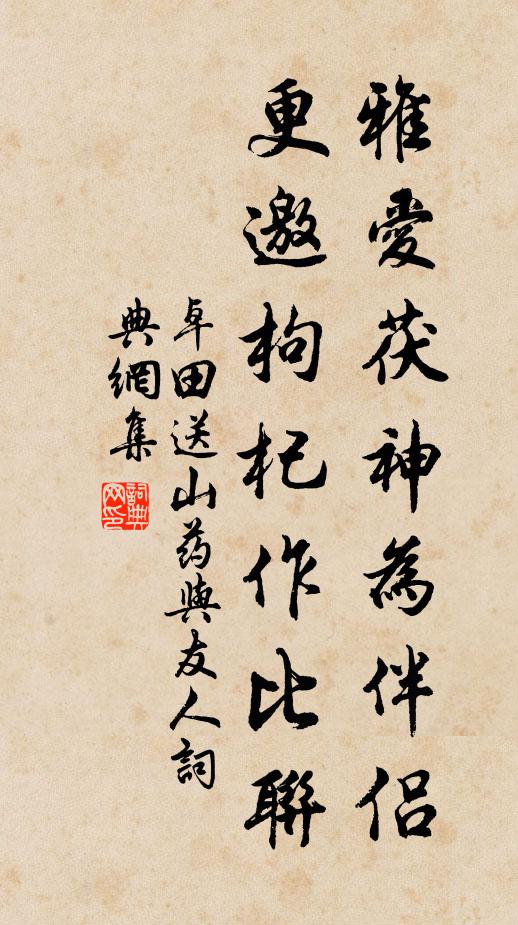 雅愛茯神為伴侶
更邀枸杞作比聯
卓田送山药與友人詞
典網集
詞典
网印